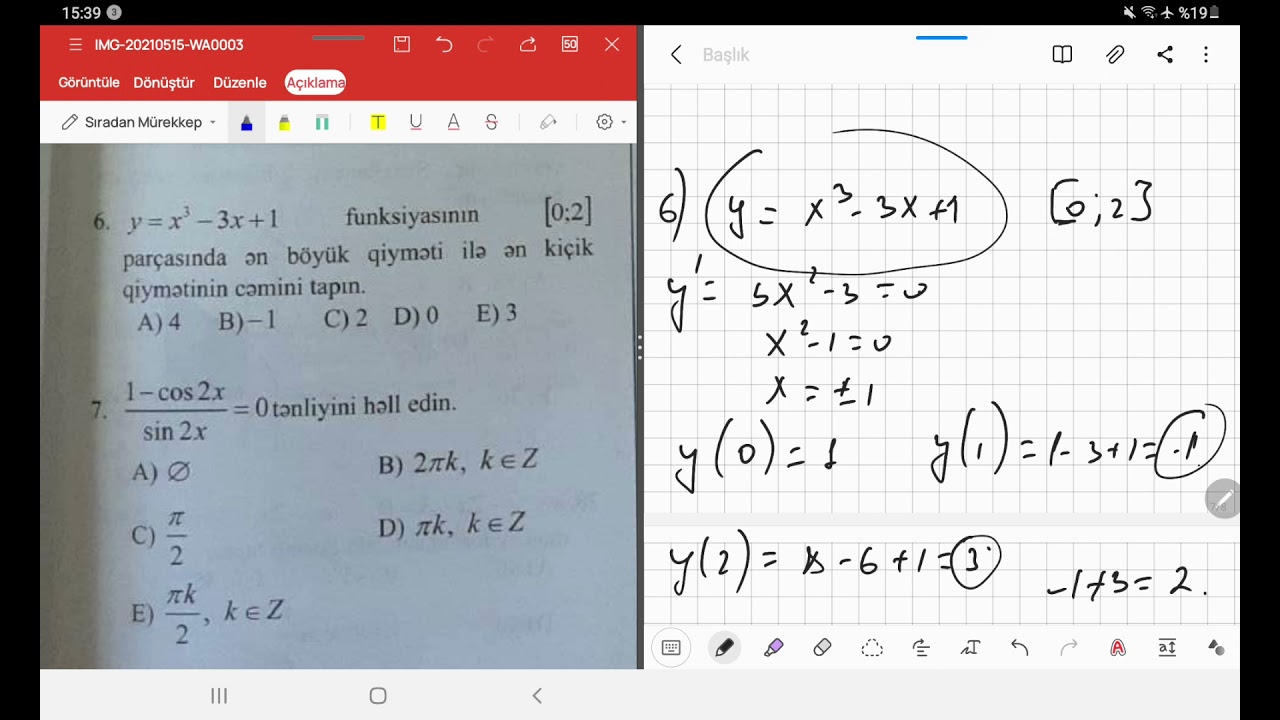 15:39 3
%19
IMG-20210515-WA0003
50
Görüntüle Dönüştür Düzenle Açıklama
Sıradan Mürekkep
T U A S
6. y = x³ − 3x + 1 funksiyasının [0;2]
parçasında ən böyük qiyməti ilə ən kiçik
qiymətinin cəmini tapın.
A) 4 B) −1 C) 2 D) 0 E) 3
7. (1 − cos 2x)/(sin 2x) = 0 tənliyini həll edin.
A) ∅ B) 2πk, k ∈ Z
C) π/2 D) πk, k ∈ Z
E) πk/2, k ∈ Z
Başlık
6) y = x³ - 3x + 1 [0;2]
y' = 3x² - 3 = 0
x² - 1 = 0
x = ± 1
y(0) = 1 y(1) = 1 - 3 + 1 = -1
y(2) = 8 - 6 + 1 = 3
-1 + 3 = 2.